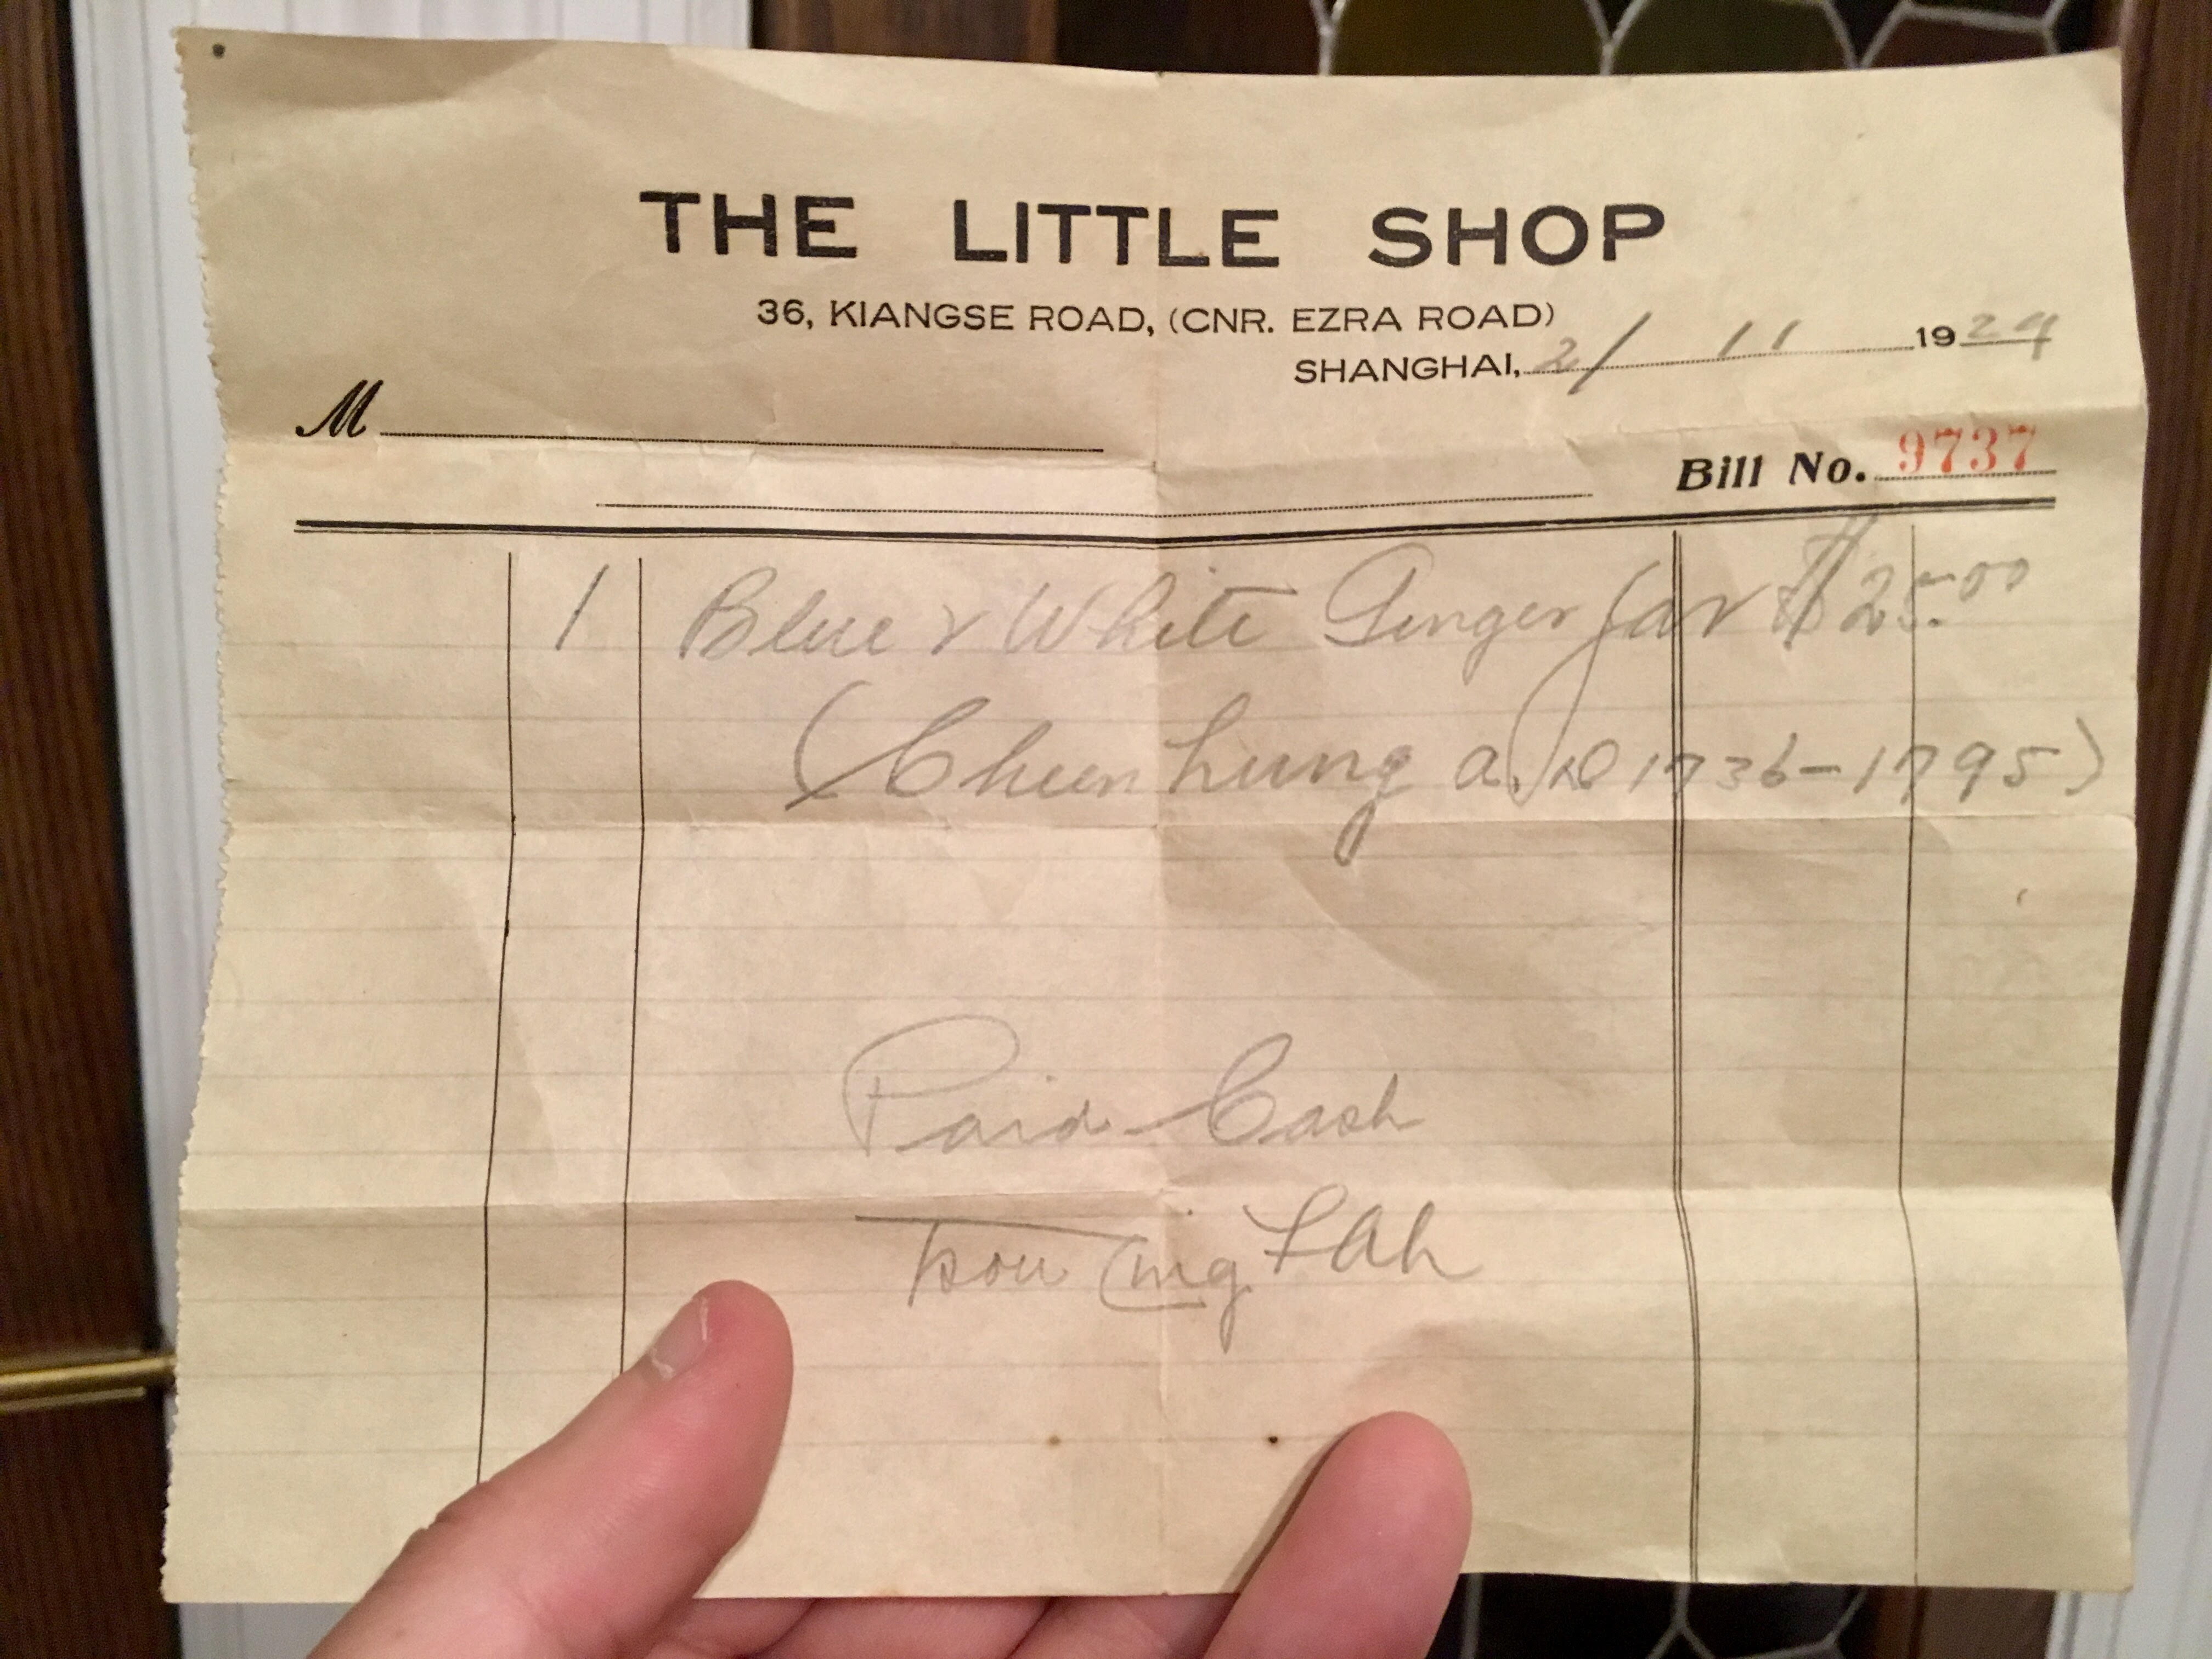 THE LITTLE SHOP
36, KIANGSE ROAD, (CNR. EZRA ROAD)
SHANGHAI, 2/ 11 1924
M
Bill No. 9737
1 Blue & White Ginger Jar $25.00
(Chien Lung A.D 1736-1795)
Paid Cash